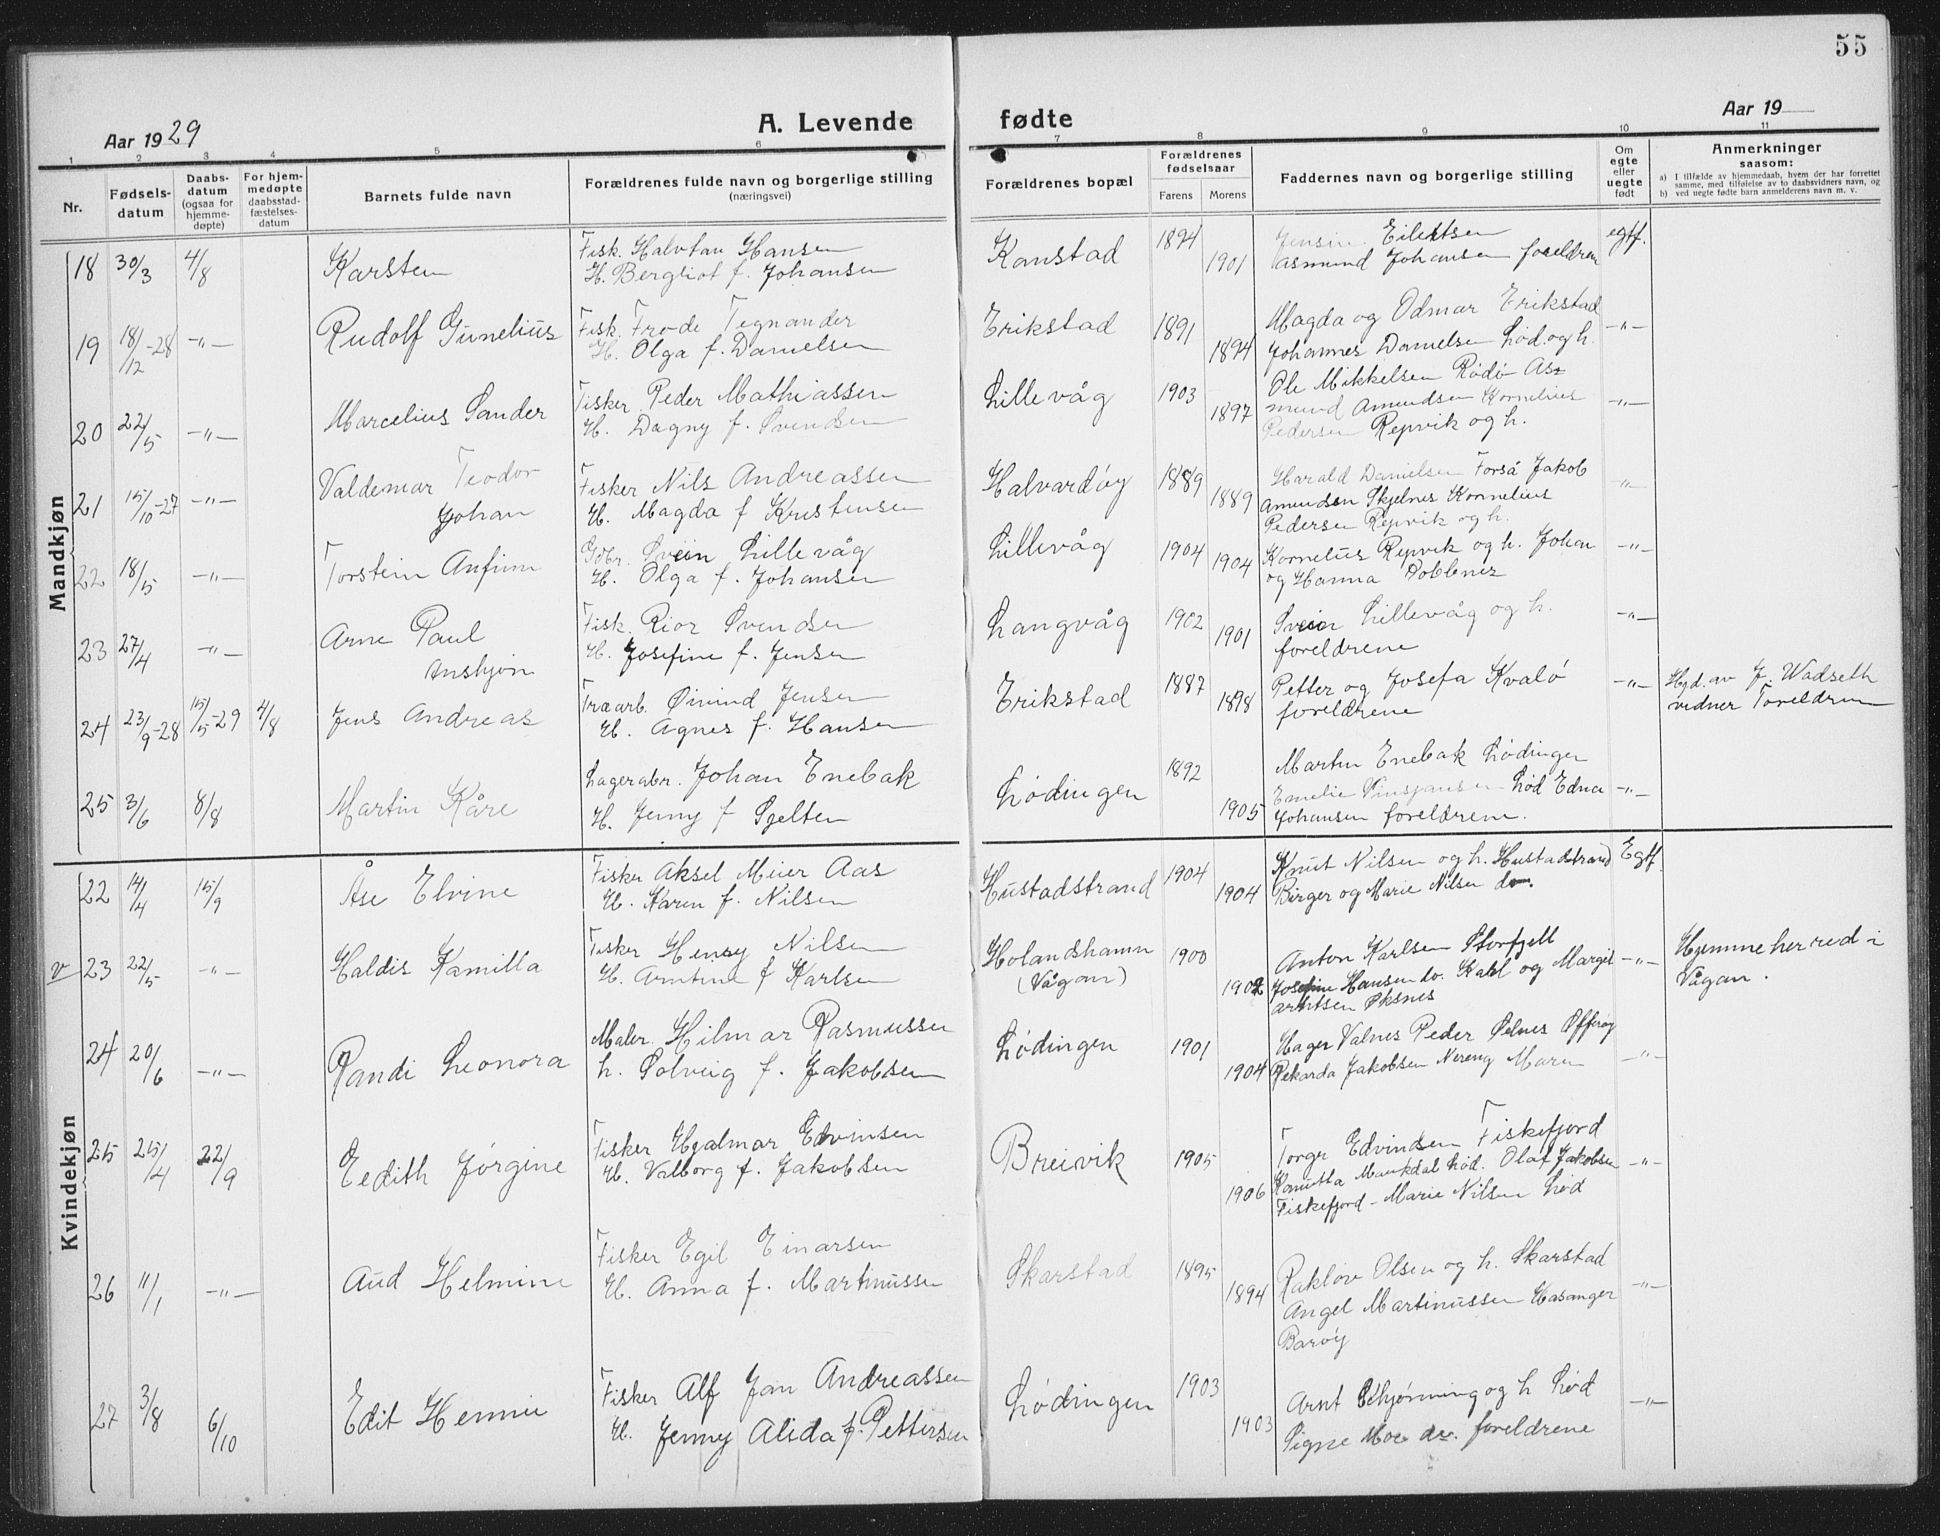 55
Aar 1929
A. Levende fødte
Aar 19
1 2 3 4 5 6 7 8 9 10 11
Nr.
Fødsels-
datum
Daabs-
datum
(ogsaa for
hjemme-
døpte)
For hjem-
medøpte
daabsstad-
fæstelses-
datum
Barnets fulde navn
Forældrenes fulde navn og borgerlige stilling
(næringsvei)
Forældrenes bopæl
Forældrenes
fødselsaar
Farens Morens
Faddernes navn og borgerlige stilling
Om
egte
eller
uegte
født
Anmerkninger
saasom:
a) I tilfælde av hjemmedaab, hvem der har forrettet
samme, med tilføielse av to daabsvidners navn, og
b) ved uegte fødte barn anmelderens navn m. v.
Mandkjøn
18 30/3 4/8 Karsten
Fisk. Halvtan Hansen
H. Bergliot f. Johansen
Kanstad 1894 1901
Jensin Eilertsen
Asmund Johansen foreldrene
egtf.
19 18/12-28 -"- Rudolf Gunelius
Fisk. Frode Tegnander
H. Olga f. Danielsen
Erikstad 1891 1894
Magda og Odmar Erikstad
Johannes Danielsen Lød. og h.
-"-
20 22/5 -"- Marcelius Sander
Fisker Peder Mathiassen
H. Dagny f. Svendsen
Lillevåg 1903 1897
Ole Mikkelsen Rødø As=
mund Amundsen Kornelius
Pedersen Repvik og h.
-"-
21 15/10-27 -"- Valdemar Teodor
Johan
Fisker Nils Andreassen
H. Magda f Kristensen
Halvardøy 1889 1889
Harald Danielsen Forså Jakob
Amundsen Skjelnes Kornelius
Pedersen Repvik og h.
-"-
22 18/5 -"- Torstein Anfinn
Gdbr. Svein Lillevåg
H. Olga f. Johansen
Lillevåg 1904 1904
Kornelius Repvik og h. Johan
og Hanna
-"-
23 27/4 -"- Arne Paul
Ansbjøn
Fisk. Rior Svendsen
H. Josefine f. Jensen
Langvåg 1902 1901
Svein Lillevåg og h.
foreldrene
-"-
24 23/9-28 15/5-29 4/8 Jens Andreas
Træarb. Øivind Jensen
H. Agnes f. Hansen
Erikstad 1887 1898
Petter og Josefa Kvalø
foreldrene
-"-
Hjd. av J. Wadseth
vidner Foreldrene
25 3/6 8/8 Martin Kåre
Lagerabr. Johan Enebak
H. Jenny f Sjelten
Lødingen 1892 1905
Martin Enebak Lødingen
Emelie Lød Edna
Johansen foreldrene.
-"-
Kvindekjøn
22 14/4 15/9 Åse Elvine
Fisker Aksel Meier Aas
H. Karen f. Nilsen
Hustadstrand 1904 1904
Knut Nilsen og h. Hustadstrand
Birger og Marie Nilsen do.
Egtf.
v 23 22/5 -"- Haldis Kamilla
Fisker Henry Nilsen
H. Arntine f Karlsen
Holandshamn
(Vågan)
1900 1902
Anton Karlsen Storfjell
Josefine Hansen do. Karl og Margit
Arntsen Øksnes
-"-
Hjemmeherred i
Vågan.
24 20/6 -"- Randi Leonora
Maler. Hilmar Rasmussen
h. Solveig f. Jakobsen
Lødingen 1901 1904
Hager Valnes Peder Selnes Offerøy
Rekarda Jakobsen Nereng Maren
-"-
25 25/4 22/9 Eedith Jørgine
Fisker Hjalmar Edvinsen
H. Valborg f. Jakobsen
Breivik 1905 1906
Torgr Edvindsen Fiskefjord
Lød. Olaf Jakobsen
Fiskefjord - Marie Nilsen Lød
-"-
26 11/1 -"- Aud Helmine
Fisker Egil Einarsen
H. Anna f. Martinussen
Skarstad 1895 1894
Olsen og h. Skarstad
Angel Martinussen
Barøy
-"-
27 3/8 6/10 Edit Hennie
Fisker Alf Jan Andreassen
H. Jenny Alida f. Pettersen
Lødingen 1903 1903
Arnt og h Lød
Signe Moe do. foreldrene
-"-